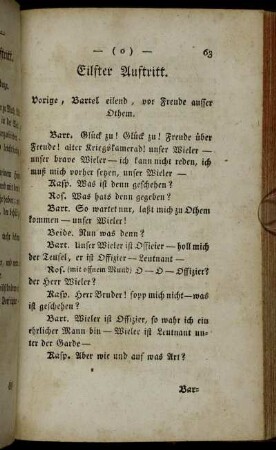 — ( o ) — 63
Eilfter Auftritt.
Vorige, Bartel eilend, vor Freude ausser
Othem.
Bart. Glück zu! Glück zu! Freude über
Freude! alter Kriegskamerad! unser Wieler —
unser brave Wieler — ich kann nicht reden, ich
muß mich vorher setzen, unser Wieler —
Kasp. Was ist denn geschehen?
Ros. Was hats denn gegeben?
Bart. So wartet nur, laßt mich zu Othem
kommen — unser Wieler!
Beide. Nun was denn?
Bart. Unser Wieler ist Officier — holl mich
der Teusel, er ist Offizier — Leutnant —
Ros. (mit offnem Mund) O — O — Offizier?
der Herr Wieler?
Kasp. Herr Bruder! fopp mich nicht — was
ist geschehen?
Bart. Wieler ist Offizier, so wahr ich ein
ehrlicher Mann bin — Wieler ist Leutnant un=
ter der Garde —
Kasp. Aber wie und auf was Art?
Bar=